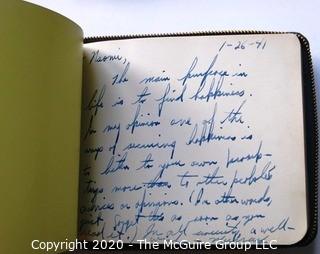 Naomi, 1-26-41
The main purpose in
life is to find happiness.
In my opinion one of the
ways of securing happiness is
to listen to your own
more than to other people's
advices or opinions. (In other words,
as soon as you
read it. In all sincerity, a well-
Copyright 2020 - The McGuire Group LLC